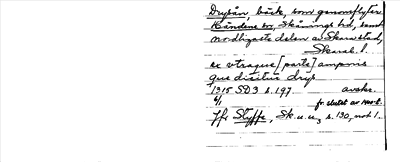 Drysån, bäck, som genomflyter
Kåndene sn, Skånings hd, samt
nordligaste delen av Skara stad,
Skarab. l.
ex utraque [parte] ampnis
que dicitur drys
1315 SD 3 s. 197. avskr.
6/1 fr. slutet av 1400-t.
Jfr Styffe, Sk. u. u. 3 s. 130, not 1.